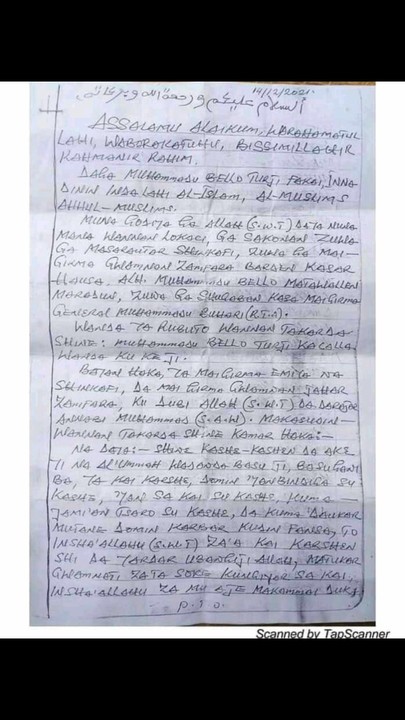 14/12/2021.
السلام عليكم ورحمة الله وبركاته
ASSALAMU ALAIKUM, WARAHAMATUL
LAHI, WABORAKATUHU, BISSIMILLAHIR
RAHMANIR RAHIM.
DAGA MUHAMMADU BELLO TURJI FAKAI, INNA
DININ INDALAHI AL-ISLAM, AL-MUSLIMS
AHHUL-MUSLIMS.
MUNA GODIYA GA ALLAH (S.W.T) DATA NUNA
MANA WANNAN LOKACI, GA SAKONAN ZUWA
GA MASARAUTAR SHINKAFI, ZUWA GA MAI-
GIRMA GWAMNAN ZAMFARA BARDEN KASAR
HAUSA. ALH. MUHAMMADU BELLO MATAWALLEN
MARADUN, ZUWA GA SHUGABAN KASA MAI GIRMA
GENERAL MUHAMMADU BUHARI (RTD).
WANDA YA RUBUTO WANNAN TAKARDA
SHINE: MUHAMMADU BELLO TURJI KACALLA
WANDA KU KE JI.
BAYAN HAKA, YA MAI GIRMA EMIR NA
SHINKAFI, DA MAI GIRMA GWAMNAN JAHAR
ZAMFARA, KU DUBI ALLAH (S.W.T) DA DARAJAR
ANNABI MUHAMMAD (S.A.W). MAKASUDIN
WANNAN TAKARDA SHINE KAMAR HAKA:-
NA DAYA:- SHINE KASHE-KASHEN DA AKE
YI NA AL'UMMAH WADANDA BASU JI, BASU GANI
BA, YA KAI KARSHE, DOMIN 'YAN BINDIGA SU
KASHE, 'YAN SA KAI SU KASHE, KUMA
JAMI'AN TSARO SU KASHE, DA KUMA DAUKAR
MUTANE DOMIN KARBAR KUDIN FANSA, TO
INSHA'ALLAHU (S.W.T) ZA'A KAI KARSHEN
SHI DA YARDAR UBANGIJI ALLAH, MATUKAR
GWAMNATI ZATA SOKE KUNGIYAR SA KAI,
INSHA'ALLAHU ZA MU AJE MAKAMMAI DUKA
P.T.O.
Scanned by TapScanner